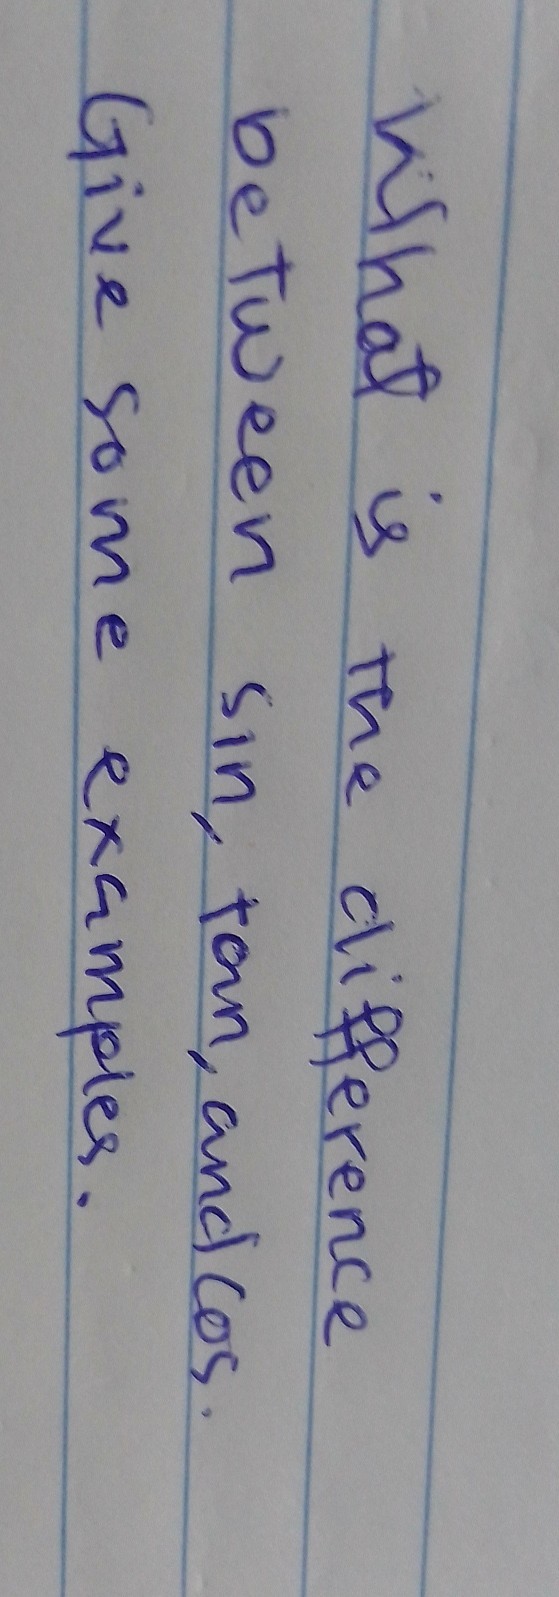 What is the difference
between sin, tan, and cos.
Give some examples.